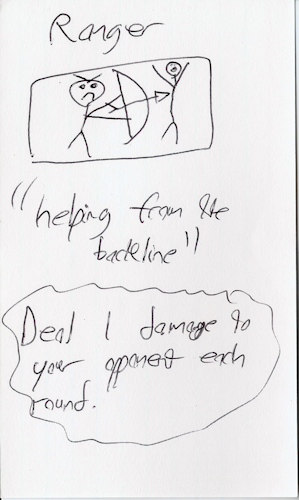 Ranger
"helping from the
backline"
Deal 1 damage to
your opponent each
round.